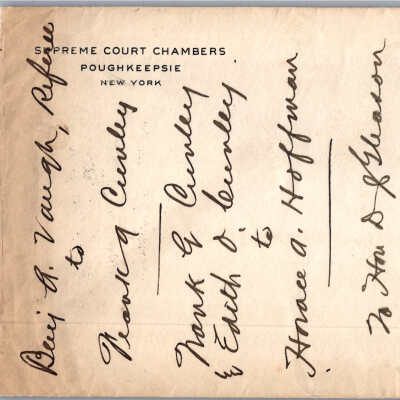 SUPREME COURT CHAMBERS
POUGHKEEPSIE
NEW YORK
Benj A. Vaugh, Referee
to
Frank G Cunley
Frank G Cunley
& Edith D. Cunley
to
Horace A. Hoffman
To Hon D S Gleason